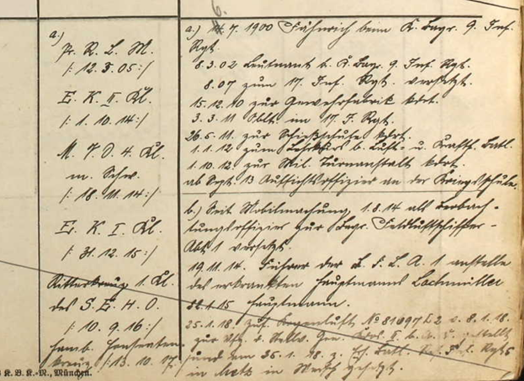 a.)
Pr. R. L. M.
/: 12. 3. 05 :/
E. K. II. Kl.
/: 1. 10. 14 :/
M. V. O. 4. Kl.
m. Schw.
/: 18. 11. 14 :/
E. K. I. Kl.
/: 31. 12. 15 :/
Ritterkreuz 1. Kl.
des S. E. H. O.
/: 10. 9. 16 :/
Hamb. Hanseaten-
kreuz /: 13. 10.
a.) 7. 1900 Fähnrich beim K. Bayr. 9. Inf.
Rgt.
8. 3. 02 Leutnant b. K. Bayr. 9. Inf. Rgt.
8. 07 zum 17. Inf. Rgt. versetzt.
15. 12. 10 zur Gewehrfabrik kdrt.
3. 3. 11 Oblt. im 17. I. Rgt.
26. 5. 11. zur Schießschule kdrt.
1. 1. 12 zum b. Luft- u. Kraftf. Batl.
1. 10. 12 zur Mil. Turnanstalt kdrt.
ab Sept. 13 Aufsichtsoffizier an der Kriegsschule.
b.) Seit Mobilmachung, 1. 8. 14 als Beobach-
tungsoffizier zur Bayr. Feldluftschiffer-
Abt. 1 versetzt.
19. 11. 14. Führer der b. F. L. A. 1 anstelle
des erkrankten Hauptmanns Lochmüller
1. 15 Hauptmann.
25. 1. 18. № 81097 8. 1. 18.
zur
und am 26. 1. 18
in Metz in versetzt.
K. B. K.-N., München.